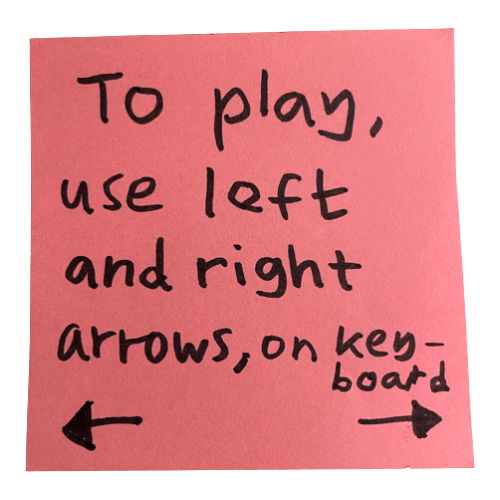 To play,
use left
and right
arrows, on key-
board
← →